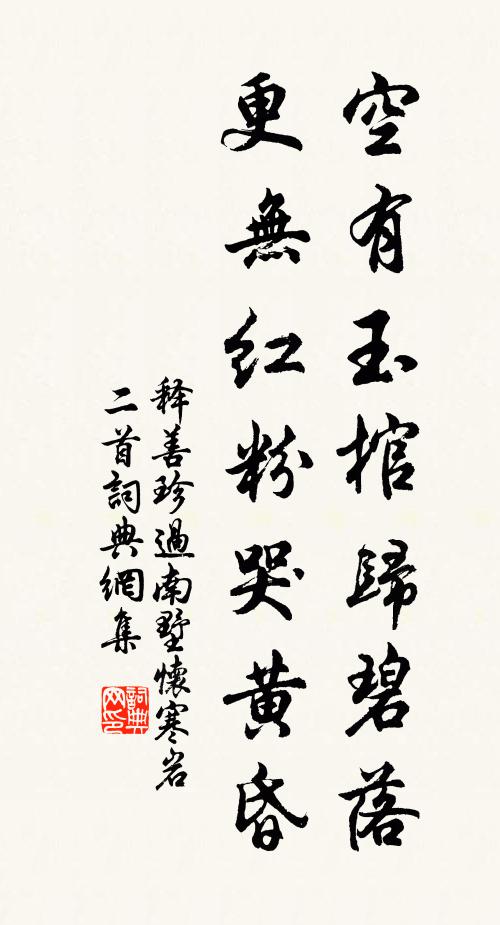 空有玉棺歸碧落
更無红粉哭黄昏
释善珍過南墅懷寒岩
二首詞典網集
詞典
网印